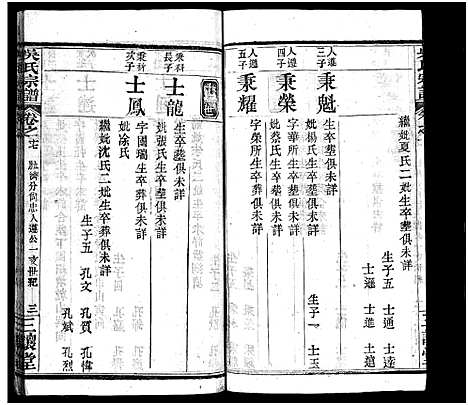 繼妣夏氏二妣生卒塟俱未詳
生子五 士通 士達
士遜 士進 士道
人遴三子
秉魁
生卒塟俱未詳
妣楊氏生卒塟俱未詳
生子一 士玉
人遴四子
秉榮
字華所生卒塟俱未詳
妣蔡氏生卒塟俱未詳
人遴五子
秉耀
字榮所生卒葬俱未詳
秉科長子
士龍
生卒塟俱未詳
妣張氏生卒塟俱未詳
秉科次子
士鳳
字國瑞生卒葬俱未詳
妣涂氏
繼妣沈氏二妣生卒塟俱未詳
生子五 孔文
孔質 孔偉
孔斌 孔烈
吳氏宗譜
卷之七
三讓堂